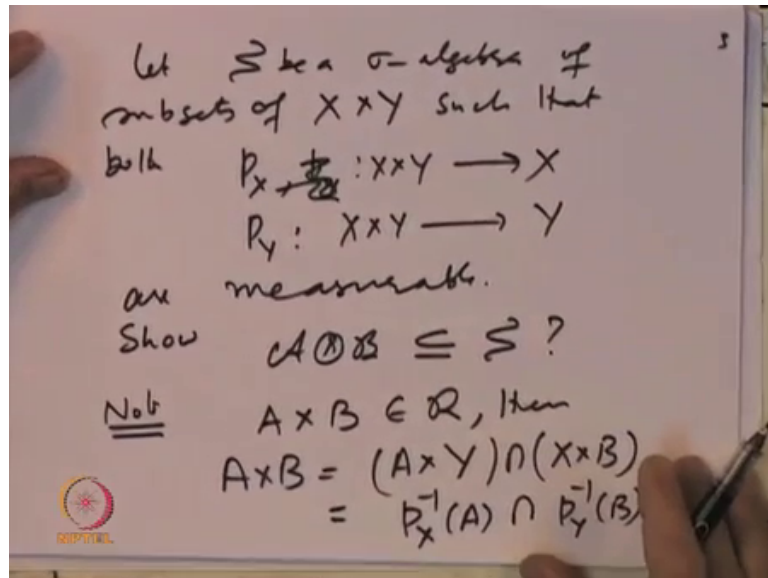 3
Let S be a σ-algebra of
subsets of X × Y such that
both P_X : X×Y ⟶ X
P_Y : X×Y ⟶ Y
are measurable.
Show A ⊗ B ⊆ S ?
Note A × B ∈ R, then
A×B = (A×Y) ∩ (X×B)
= P_X^{-1}(A) ∩ P_Y^{-1}(B)
NPTEL